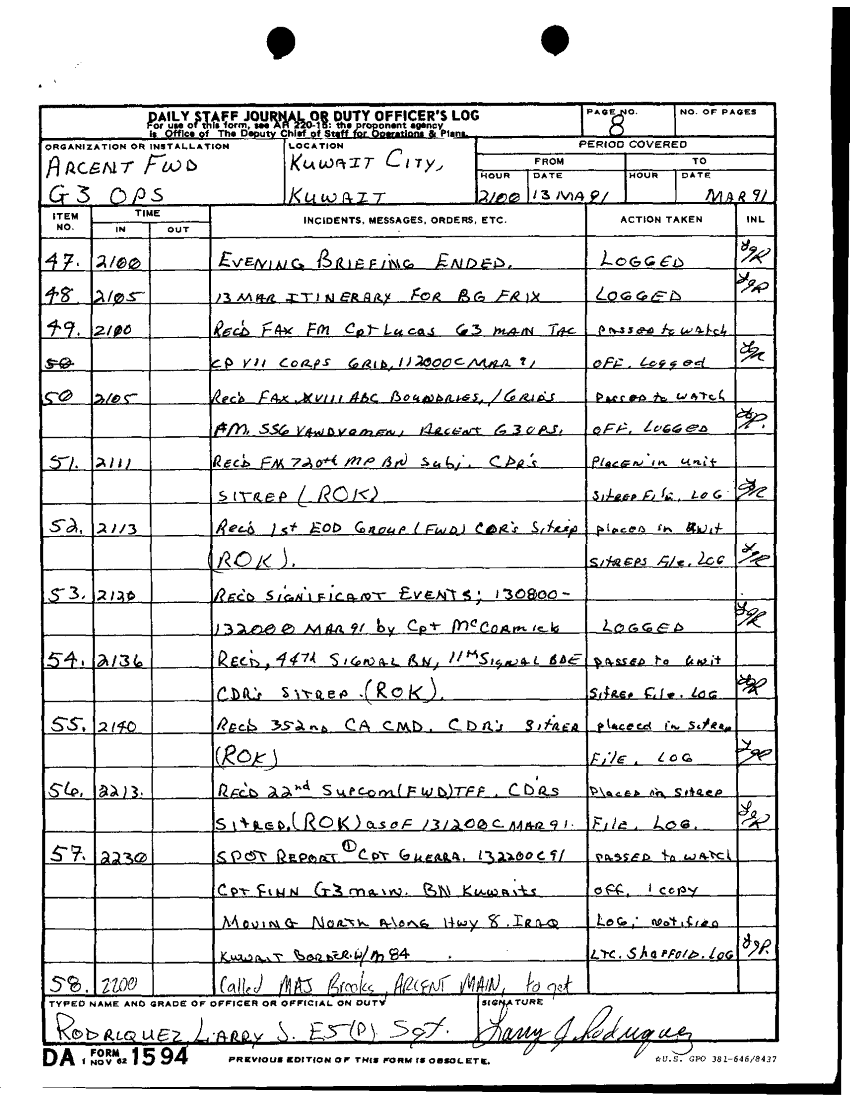 DAILY STAFF JOURNAL OR DUTY OFFICER'S LOG
For use of this form, see AR 220-15; the proponent agency
is Office of The Deputy Chief of Staff for Operations & Plans.
PAGE NO.
8
NO. OF PAGES
ORGANIZATION OR INSTALLATION
ARCENT FWD
G3 OPS
LOCATION
KUWAIT CITY,
KUWAIT
PERIOD COVERED
FROM TO
HOUR DATE HOUR DATE
2100 13 MA 91 MAR 91
ITEM NO. TIME INCIDENTS, MESSAGES, ORDERS, ETC. ACTION TAKEN INL
IN OUT
47. 2100 EVENING BRIEFING ENDED. LOGGED
48 2105 13 MAR ITINERARY FOR BG FRIX LOGGED
49. 2100 REC'D FAX FM CPT LUCAS G3 MAIN TAC PASSED TO WATCH
50 CP VII CORPS GRID, 112000C MAR 91 OFF. LOGGED
50 2105 REC'D FAX XVIII ABC BOUNDRIES, /GRIDS PASSED TO WATCH
FM. SSG ARCENT G3 OPS. OFF, LOGGED
51. 2111 REC'D FM 720th MP BN Subj. CDR's PLACEN in unit
SITREP (ROK) SitREP File, LOG
52. 2113 Rec'd 1st EOD GROUP (FWD) CDR's Sitrep placed in Unit
(ROK). SITREPS File, LOG
53. 2120 REC'D SIGNIFICANT EVENTS; 130800-
132000 MAR 91 by Cpt McCORMICK LOGGED
54. 2136 REC'D, 44th SIGNAL BN, 11th SIGNAL BDE PASSED to Unit
CDR's SITREP. (ROK). SitREP File. LOG
55. 2140 REC'D 352nd CA CMD. CDR's SITREP placeed in SitREP
(ROK) File, LOG
56. 2213. REC'D 22nd SUPCOM (FWD) TFF, CDR'S PLACED in SITREP
SITREP. (ROK) as of 131200C MAR 91. File, LOG.
57. 2230 SPOT REPORT ① CPT GUERRA. 132200C 91 PASSED to WATCH
CPT FINN G3 main. BN Kuwaits OFF, 1 copy
MOVING NORTH Along Hwy 8. IRAQ LOG; Notified
KUWAIT BORDER. W/M 84 LTC. SHAFFOLD. LOG
58. 2200 Called MAJ Brooks, ARCENT MAIN, to get
TYPED NAME AND GRADE OF OFFICER OR OFFICIAL ON DUTY SIGNATURE
RODRIQUEZ LARRY J. E5(P) Sgt. Larry J. Rodriquez
DA FORM 1594
1 NOV 62
PREVIOUS EDITION OF THIS FORM IS OBSOLETE.
☆U.S. GPO 381-646/8437